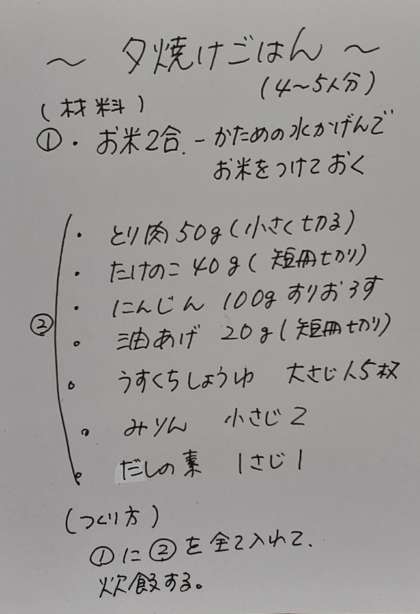 ～ 夕焼けごはん ～
(4～5人分)
(材料)
①・お米2合.－かための水かげんで
お米をつけておく
②
・とり肉50g(小さく切る)
・たけのこ40g(短冊切り)
・にんじん 100gすりおろす
・油あげ 20g(短冊切り)
・うすくちしょうゆ 大さじ
・みりん 小さじ2
・だしの素 小さじ1
(つくり方)
①に②を全て入れて、
炊飯する。